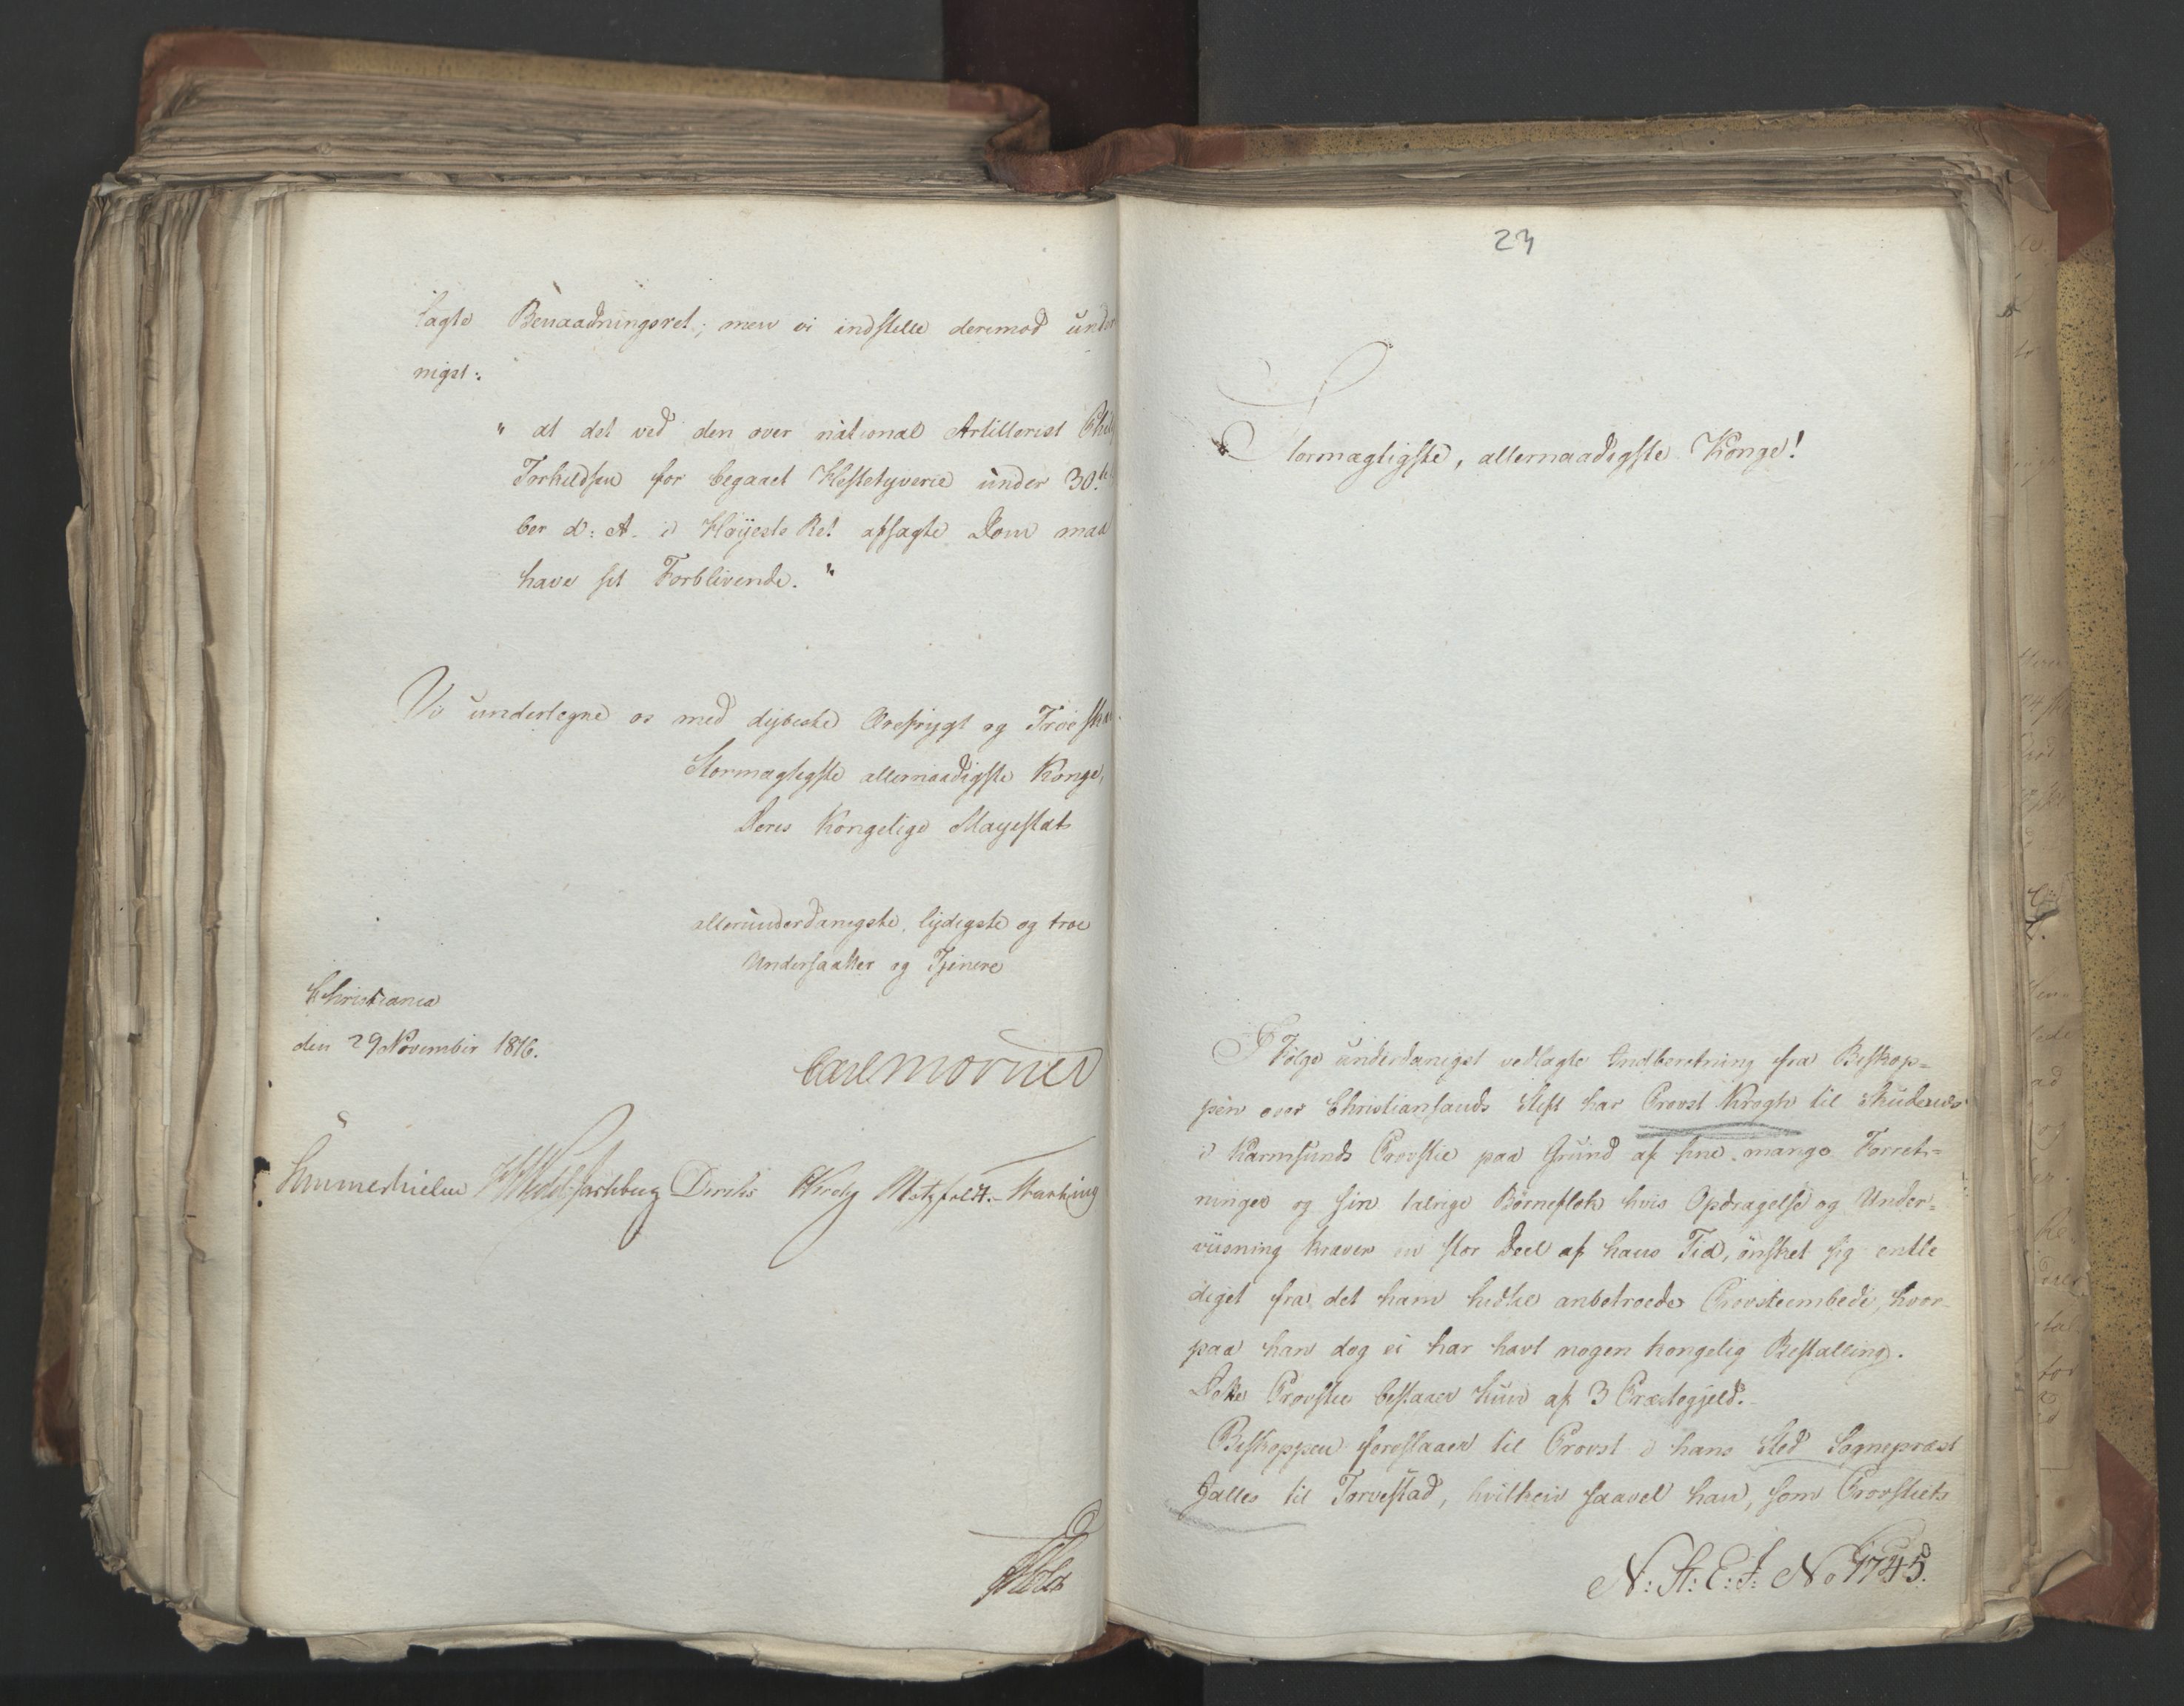 lagte Benaadningsret; men vi indstille derimod under
nigst:
" at det ved den over national Artillerist
Torkildsen for begaaet Hestetyverie under 30te
ber d: A. i Høÿeste Ret afsagte Dom maa
have sit Forblivende. "
Vi undertegne os med dybeste Ærefrygt og Troeska
Stormægtigste allernaadigste Konge,
Deres Kongelige Mayestæts
allerunderdanigste, lydigste og troe
Undersaatter og Tjenere
Christiania
den 29 November 1816.
Carl Mörner
Sommerhielm Diriks Krebg Motzfeldt.
Holst
23
Stormægtigste, allernaadigste Konge!
I Følge underdanigst vedlagte Indberetning fra Biskop=
pen over Christiansands Stift har Provst Krogh til Skudenes
i Karmsunds Provstie paa Grund af sine mange Forret=
ninger og sin talrige Børneflok hvis Opdragelse og Under=
viisning kræver en stor Deel af hans Tid, ønsket sig entle
diget fra det ham hidtil anbetroede Provsteembede, hvor-
paa han dog ei har havt nogen kongelig Bestalling.
Dette Provstie bestaaer kun af 3 Præstegjeld.-
Biskoppen foreslaaer til Provst i hans Sted Sognepræst
Jalles til Torvestad, hvilken saavel han, som Provstiets
N: St: E: J: No 1745.